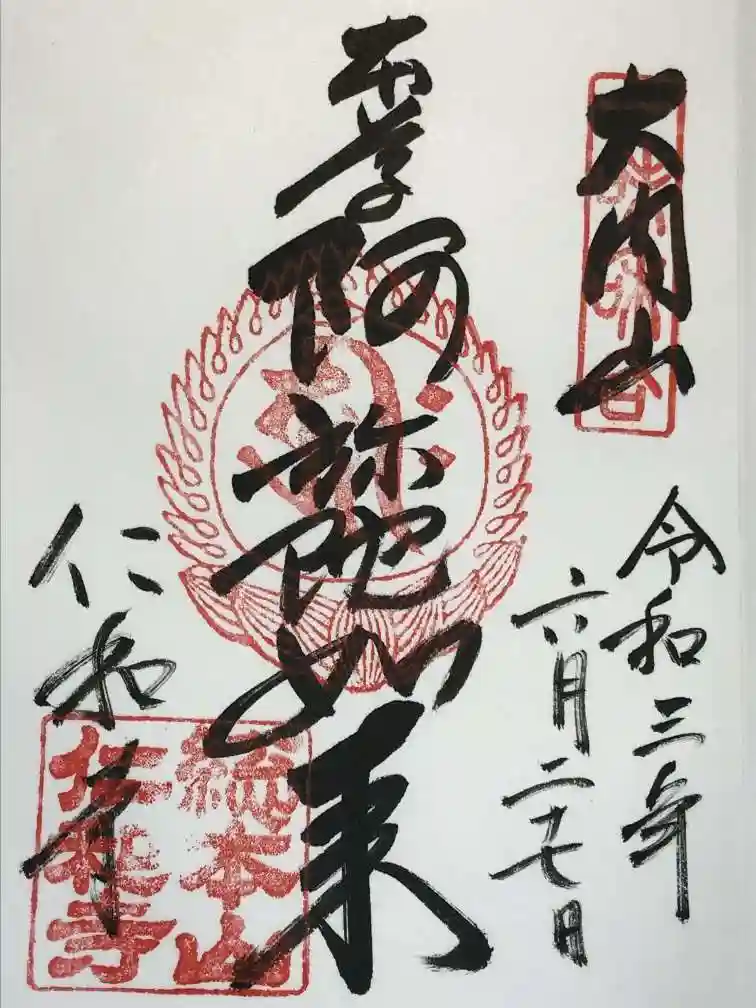 大内山
令和三年
六月二十七日
本尊
阿弥陀如来
仁和寺
総本山
仁和寺